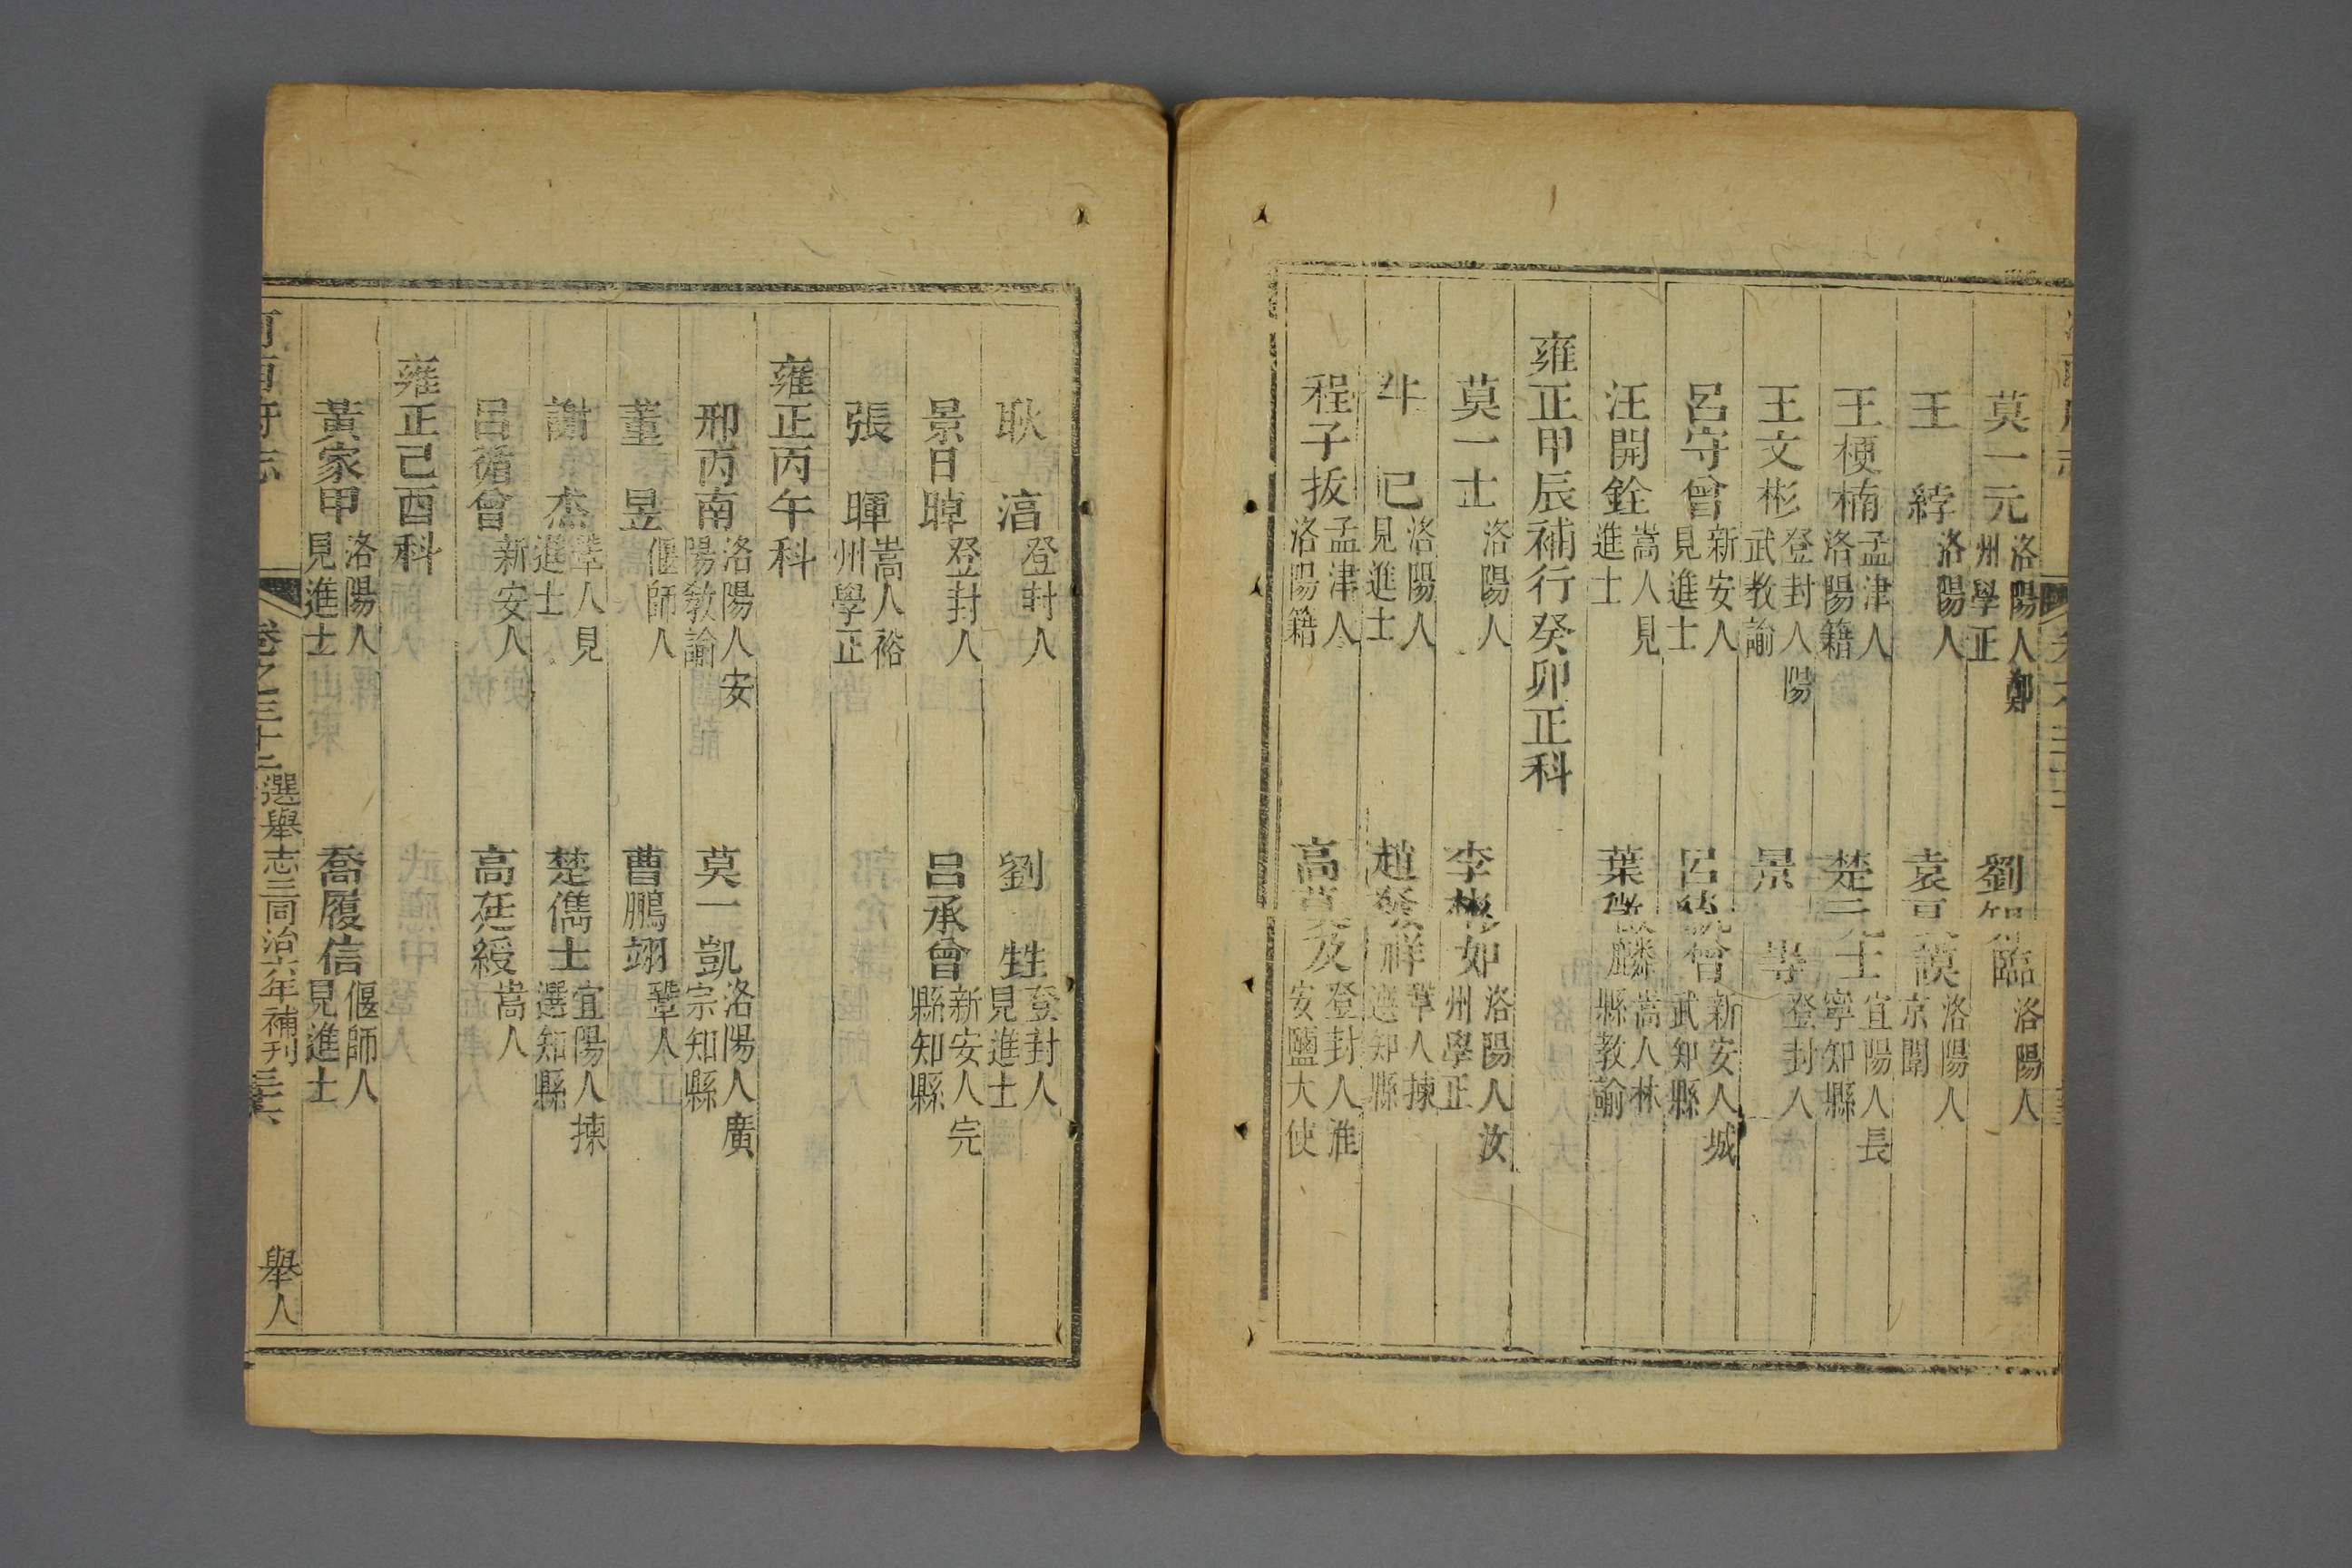 莫一元 洛陽人鄭州學正 劉 臨 洛陽人
王 綍 洛陽人 袁 謨 洛陽人京闈
王梗楠 孟津人洛陽籍 楚 士 宜陽人長寧知縣
王文彬 登封人陽武教諭 景 壽 登封人
呂守曾 新安人見進士 呂 曾 新安人城武知縣
汪開銓 嵩人見進士 葉 麟 嵩人林縣教諭
雍正甲辰補行癸卯正科
莫一士 洛陽人 李彬如 洛陽人汝州學正
牛 已 洛陽人見進士 趙發祥 鞏人揀選知縣
程子拔 孟津人洛陽籍 高 及 登封人淮安鹽大使
耿 湇 登封人 劉 甡 登封人見進士
景日晫 登封人 呂承曾 新安人完縣知縣
張 暉 嵩人裕州學正
雍正丙午科
邢丙南 洛陽人安陽敎諭 莫一凱 洛陽人廣宗知縣
董 昱 偃師人 曹鵬翊 鞏人
謝 杰 鞏人見進士 楚儁士 宜陽人揀選知縣
呂循曾 新安人 高廷綬 嵩人
雍正己酉科
黃家甲 洛陽人見進士 喬履信 偃師人見進士
河南府志 卷之三十二 選舉志三同治六年補刊 舉人